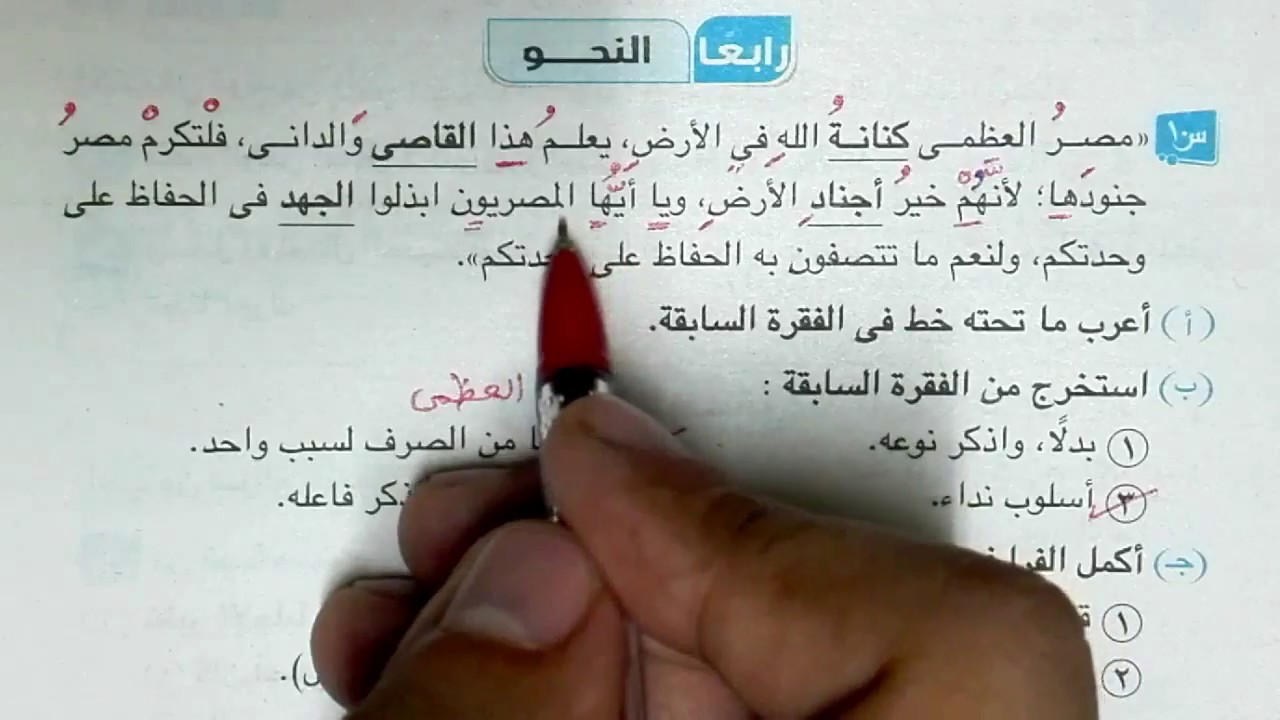 رابعًا النحو
س١ «مصرُ العظمى كنانةُ اللهِ فِي الأرضِ، يعلمُ هذا القاصى وَالدانى، فلْتكرمْ مصرُ
جنودَها؛ لأنهُم خيرُ أجنادِ الأرضِ، ويا أيُّها المصريون ابذلوا الجهد فى الحفاظ على
وحدتكم، ولنعم ما تتصفون به الحفاظ على
(أ) أعرب ما تحته خط فى الفقرة السابقة.
(ب) استخرج من الفقرة السابقة : العظمى
١ بدلًا، واذكر نوعه. من الصرف لسبب واحد.
٣ أسلوب نداء. فاعله.
(جـ) أكمل
١
٢